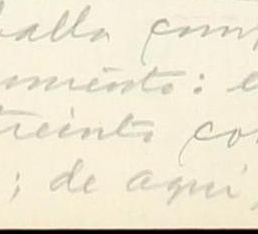 halla com
omento: e
treinta co
; de aquí